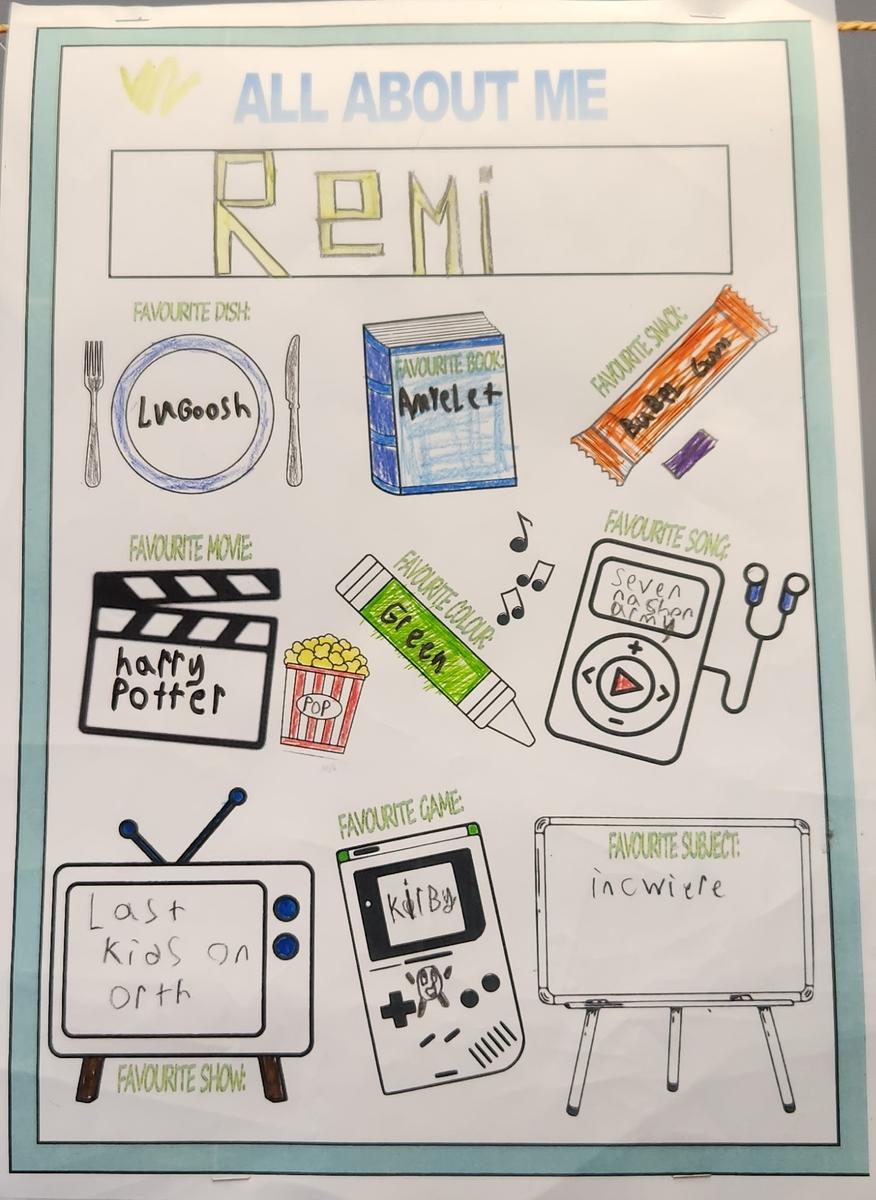 ALL ABOUT ME
Remi
FAVOURITE DISH:
LuGoosh
FAVOURITE BOOK:
Amyelet
FAVOURITE SNACK:
BuBBEL Gum
FAVOURITE MOVIE:
harry
Potter
POP
FAVOURITE COLOUR:
Green
FAVOURITE SONG:
seven
nashon
army
Last
Kids on
orth
FAVOURITE SHOW:
FAVOURITE GAME:
KirBy
FAVOURITE SUBJECT:
incwiere